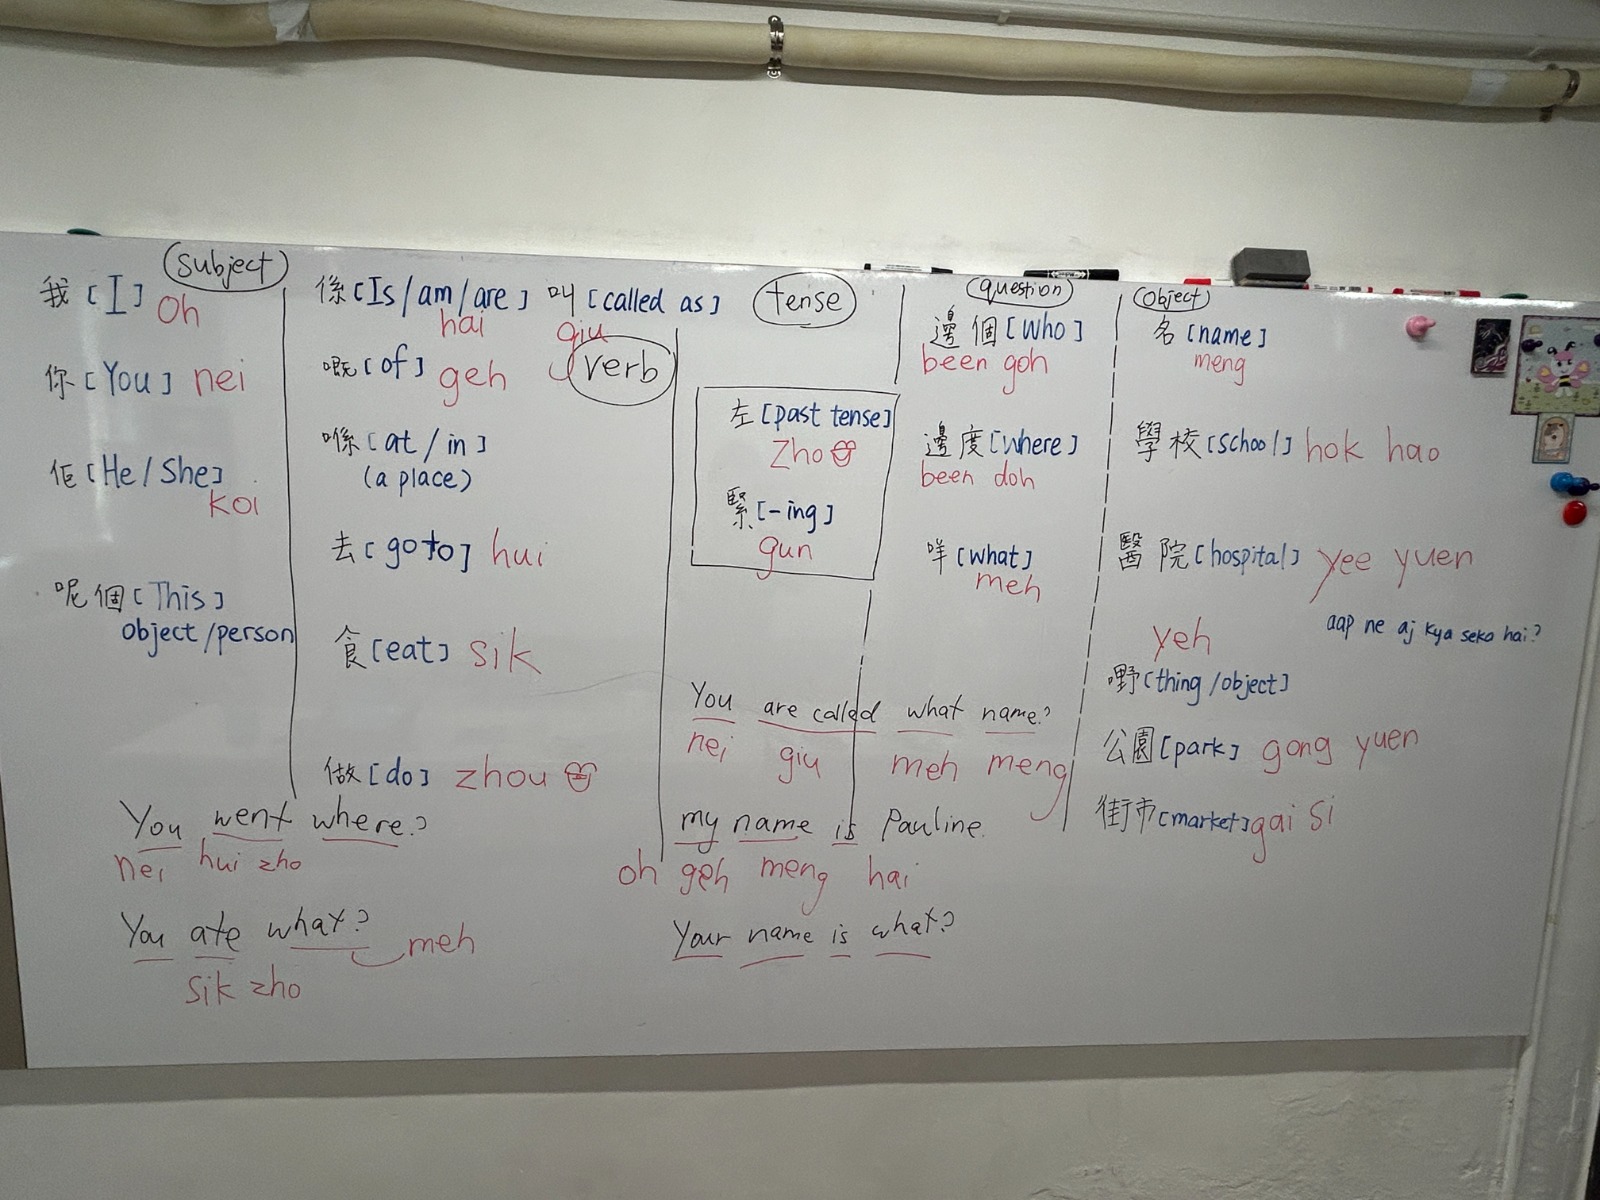 subject
我 [I] oh
你 [You] nei
佢 [He/She]
koi
呢個 [This]
object/person
係 [Is/am/are] 叫 [called as]
hai giu
verb
嘅 [of] geh
喺 [at/in]
(a place)
去 [go to] hui
食 [eat] sik
做 [do] zhou
tense
左 [past tense]
zho
緊 [-ing]
gun
question
邊個 [who]
been goh
邊度 [where]
been doh
咩 [what]
meh
object
名 [name]
meng
學校 [school] hok hao
醫院 [hospital] yee yuen
aap ne aj kya seka hai?
yeh
嘢 [thing/object]
公園 [park] gong yuen
街市 [market] gai si
You went where?
nei hui zho
You ate what? meh
sik zho
You are called what name?
nei giu meh meng
my name is Pauline.
oh geh meng hai
Your name is what?